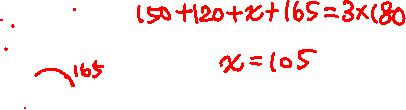 150+120+x+165=3×180
x=105
165